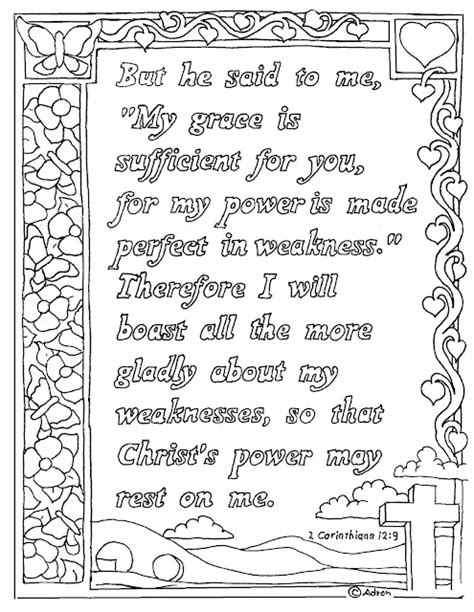 But he said to me,
"My grace is
sufficient for you,
for my power is made
perfect in weakness."
Therefore I will
boast all the more
gladly about my
weaknesses, so that
Christ's power may
rest on me.
2 Corinthians 12:9
© Adron